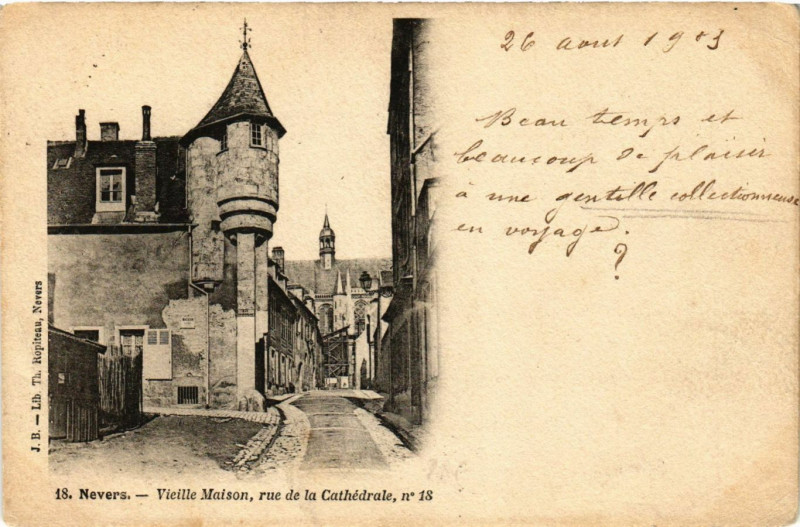 26 aout 1903
Beau temps et
beaucoup de plaisir
à une gentille collectionneuse
en voyage.
?
J. B. — Lib. Th. Ropiteau, Nevers
18. Nevers. — Vieille Maison, rue de la Cathédrale, n° 18